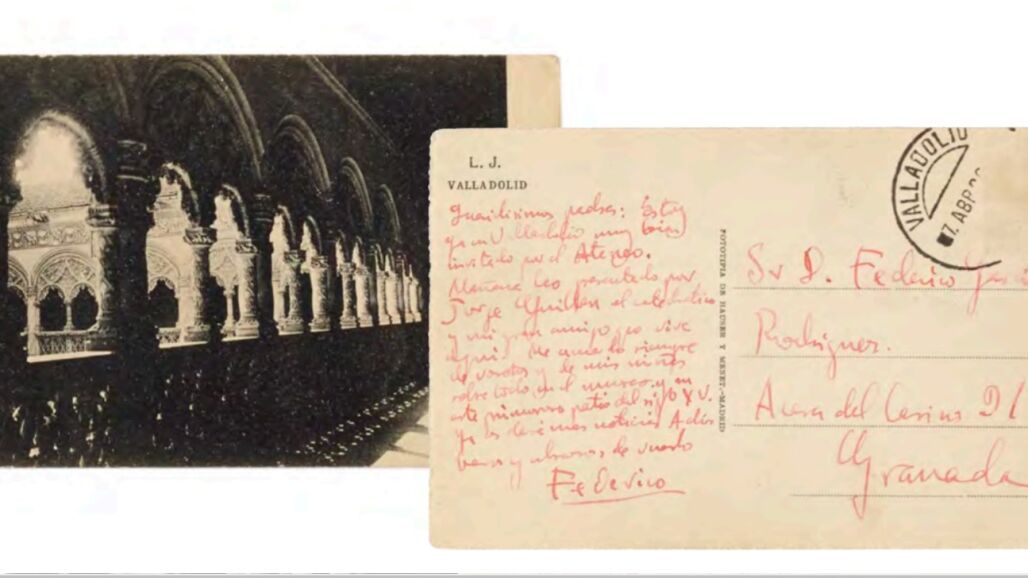 L. J.
VALLADOLID
padres: Estoy
ya en Valladolid muy bien
invitado por el Ateneo.
Mañana leo presentado por
Jorge Guillen el catedratico
y mi gran amigo que vive
aqui. Me acuerdo siempre
de vosotros y de mis niños
sobre todo en el museo y en
este primoroso patio del siglo XV.
Ya os daré mas noticias. Adiós
besos y abrazos de vuestro
Federico
FOTOTIPIA DE HAUSER Y MENET.-MADRID
VALLADOLID
7. ABR
Sr D. Federico
Rodriguez.
Acera del Casino
Granada